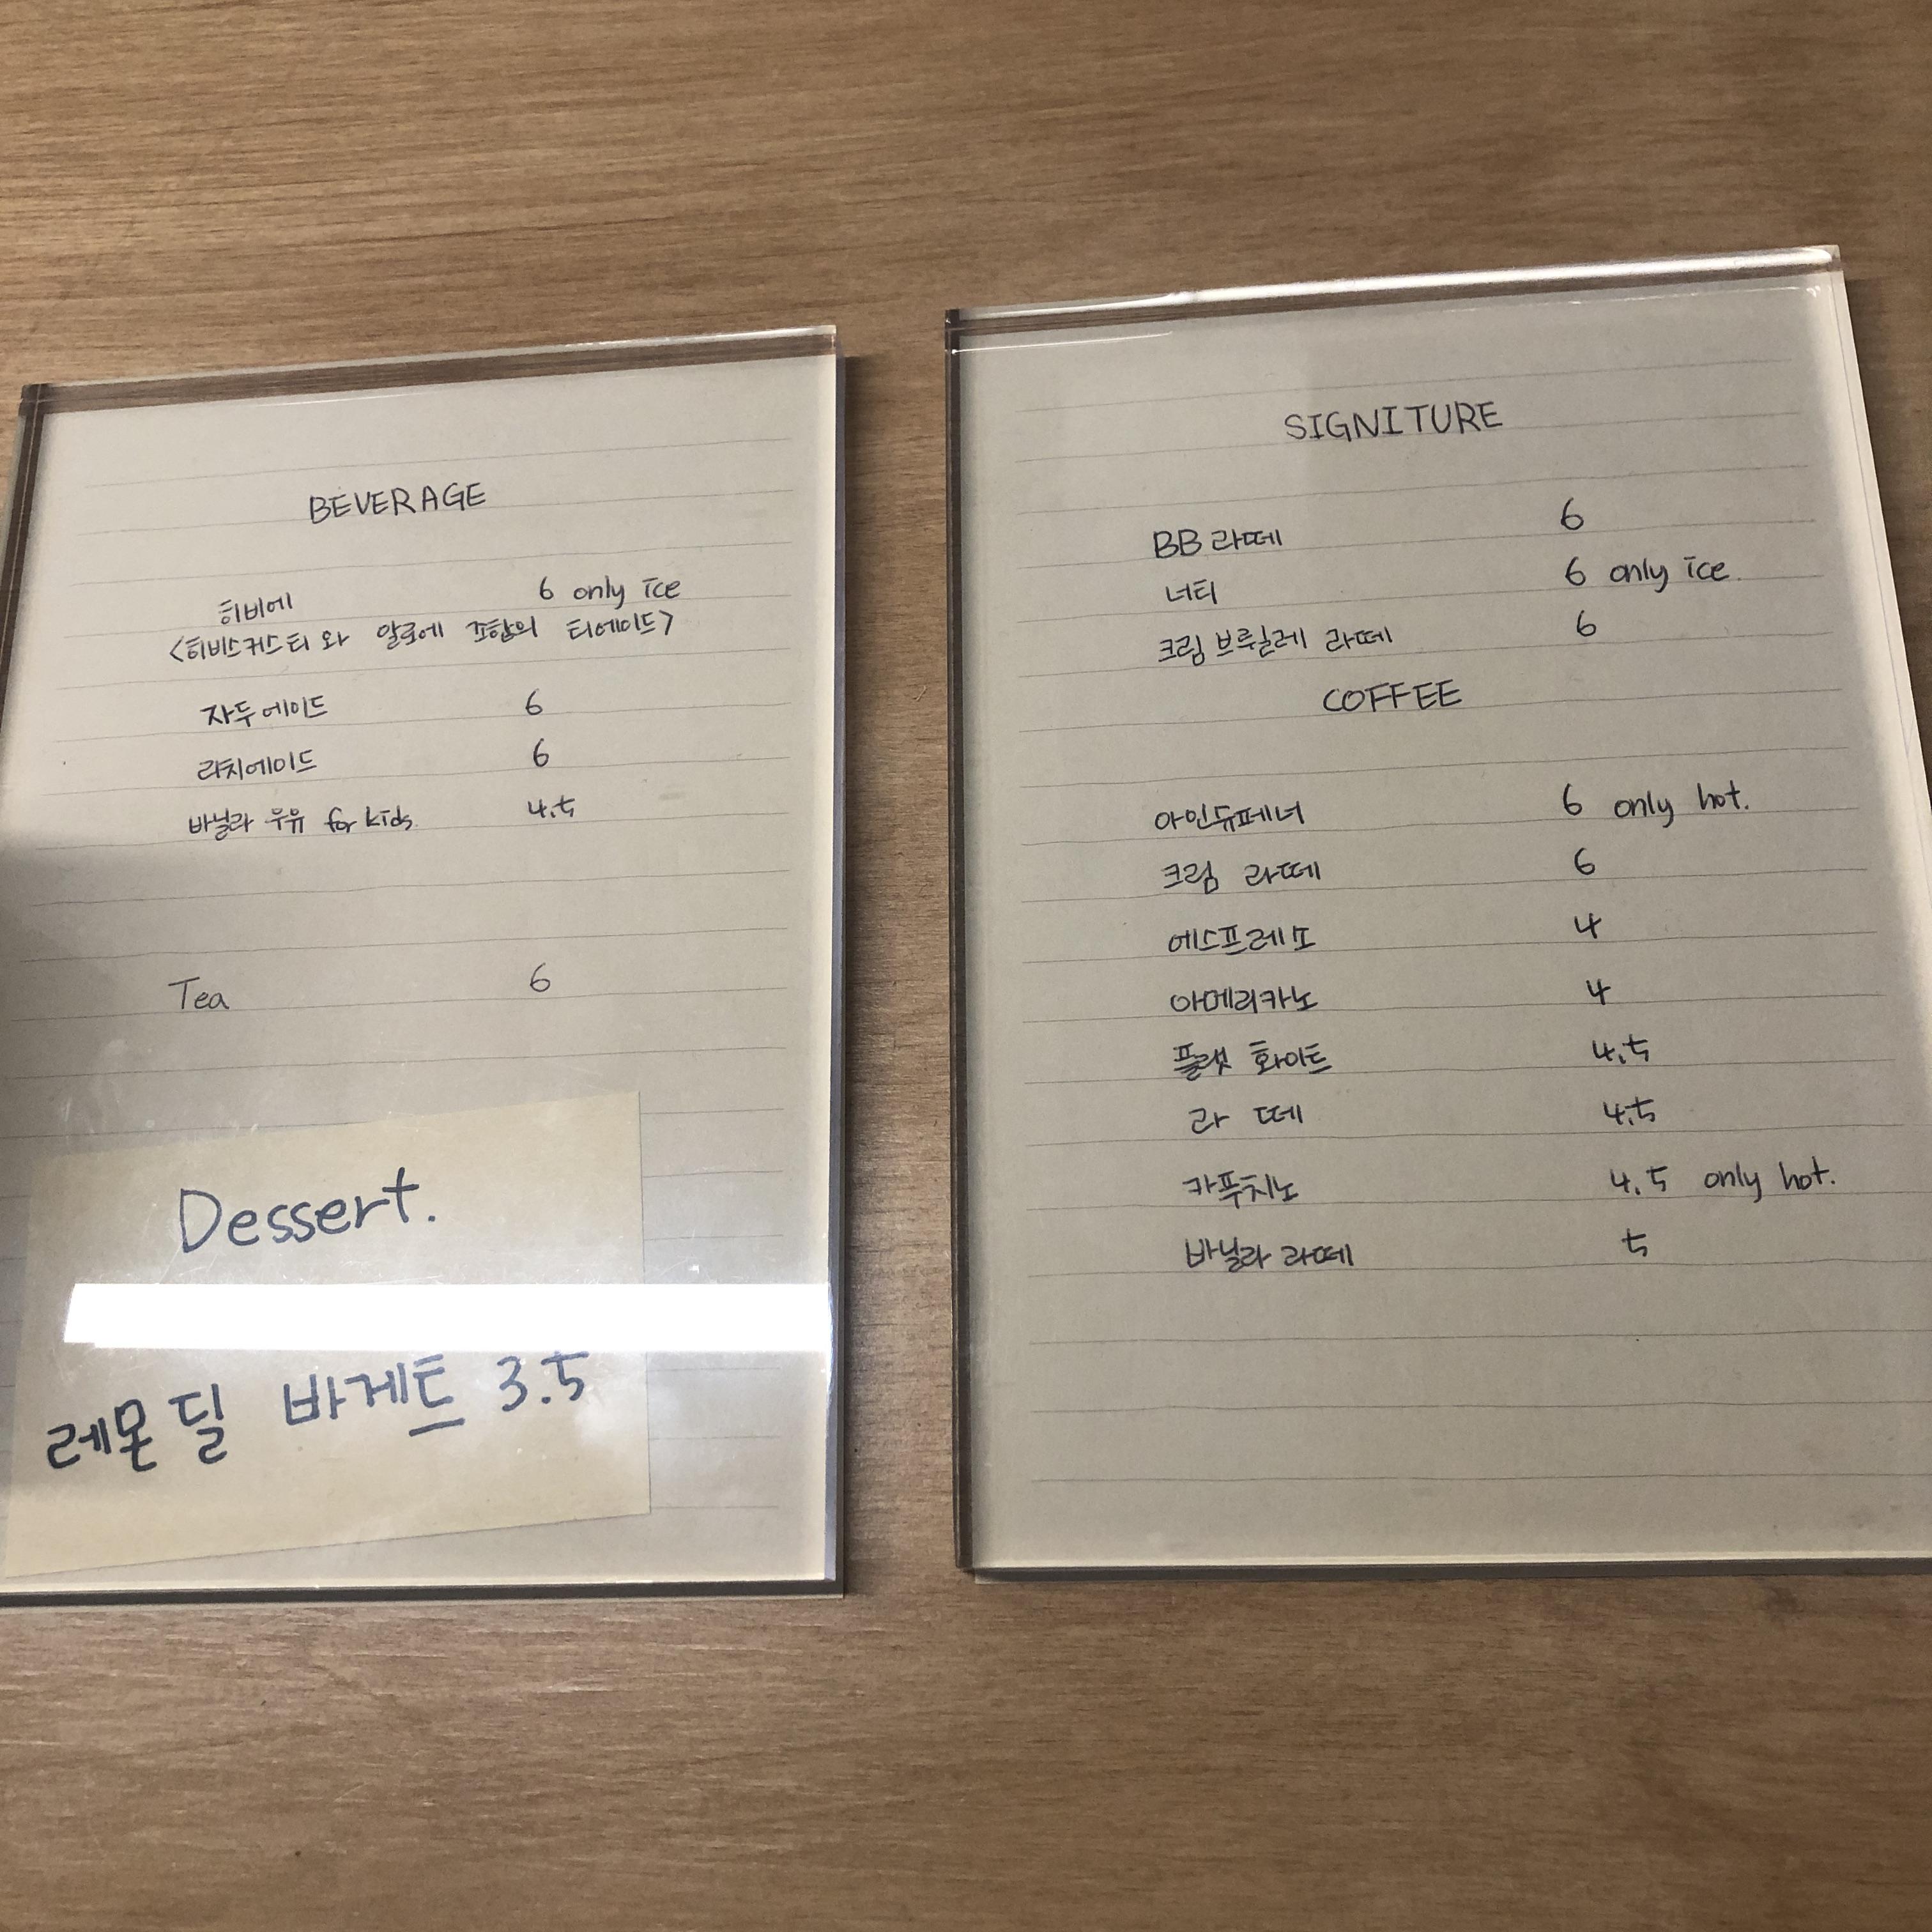 BEVERAGE
히비에 6 only ice
<히비스커스티와 알로에 조합의 티에이드>
자두에이드 6
리치에이드 6
바닐라 우유 for kids. 4.5
Tea 6
Dessert.
레몬 딜 바게트 3.5
SIGNITURE
BB 라떼 6
너티 6 only ice.
크림 브루일레 라떼 6
COFFEE
아인슈페너 6 only hot.
크림 라떼 6
에스프레소 4
아메리카노 4
플랫 화이트 4.5
라 떼 4.5
카푸치노 4.5 only hot.
바닐라 라떼 5